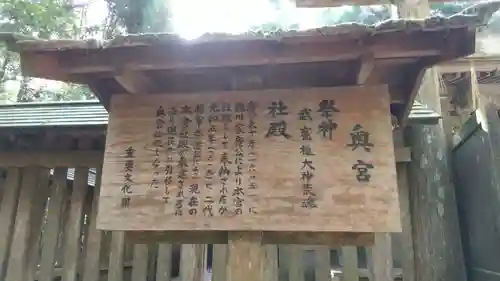 奥宮
祭神 武甕槌大神荒魂
社殿
慶長十年(一六〇五)に
徳川家康公が本宮の
社殿として奉納したが
元和五年(一六一九)に二代
将軍秀忠公により現在の
本宮が
引移して
奥宮となった
重要文化財